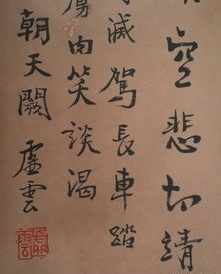 空悲切靖
滅駕長車踏
虜肉笑談渴
朝天闕 虛雲